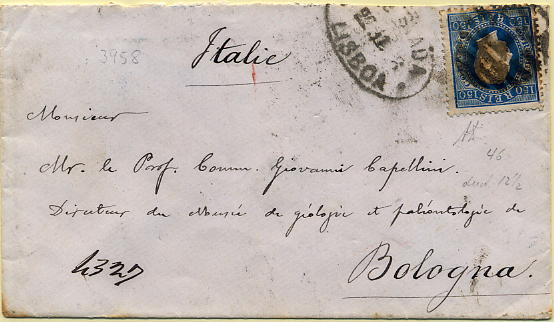 3958
Italie
LISBOA
150 REIS 150
Monsieur
Mr. le Prof. Comm. Giovanni Capellini.
Directeur du Musée de géologie et paléontologie de
Bologna.
4327
46
12½